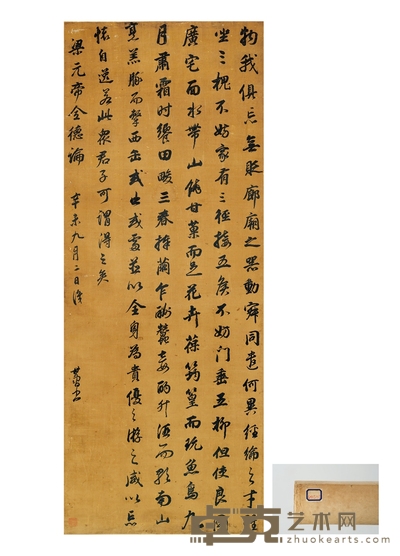 物我俱忘無貶廊廟之器動寂同遣何異經綸之才雖
坐三槐不妨家有三徑接五侯不妨門垂五柳但使良園
廣宅面水帶山饒甘菓而足花卉葆筠篁而玩魚鳥九
月肅霜時饗田畯三春捧繭乍酬蠶妾酌升酒而歌南山
烹羔豚而擊西缶或出或處並以全身為貴優之游之咸以忘
懷自逸若此衆君子可謂得之矣
梁元帝全德論 辛未九月二日
其昌
卓克艺术网
www.zhuokearts.com